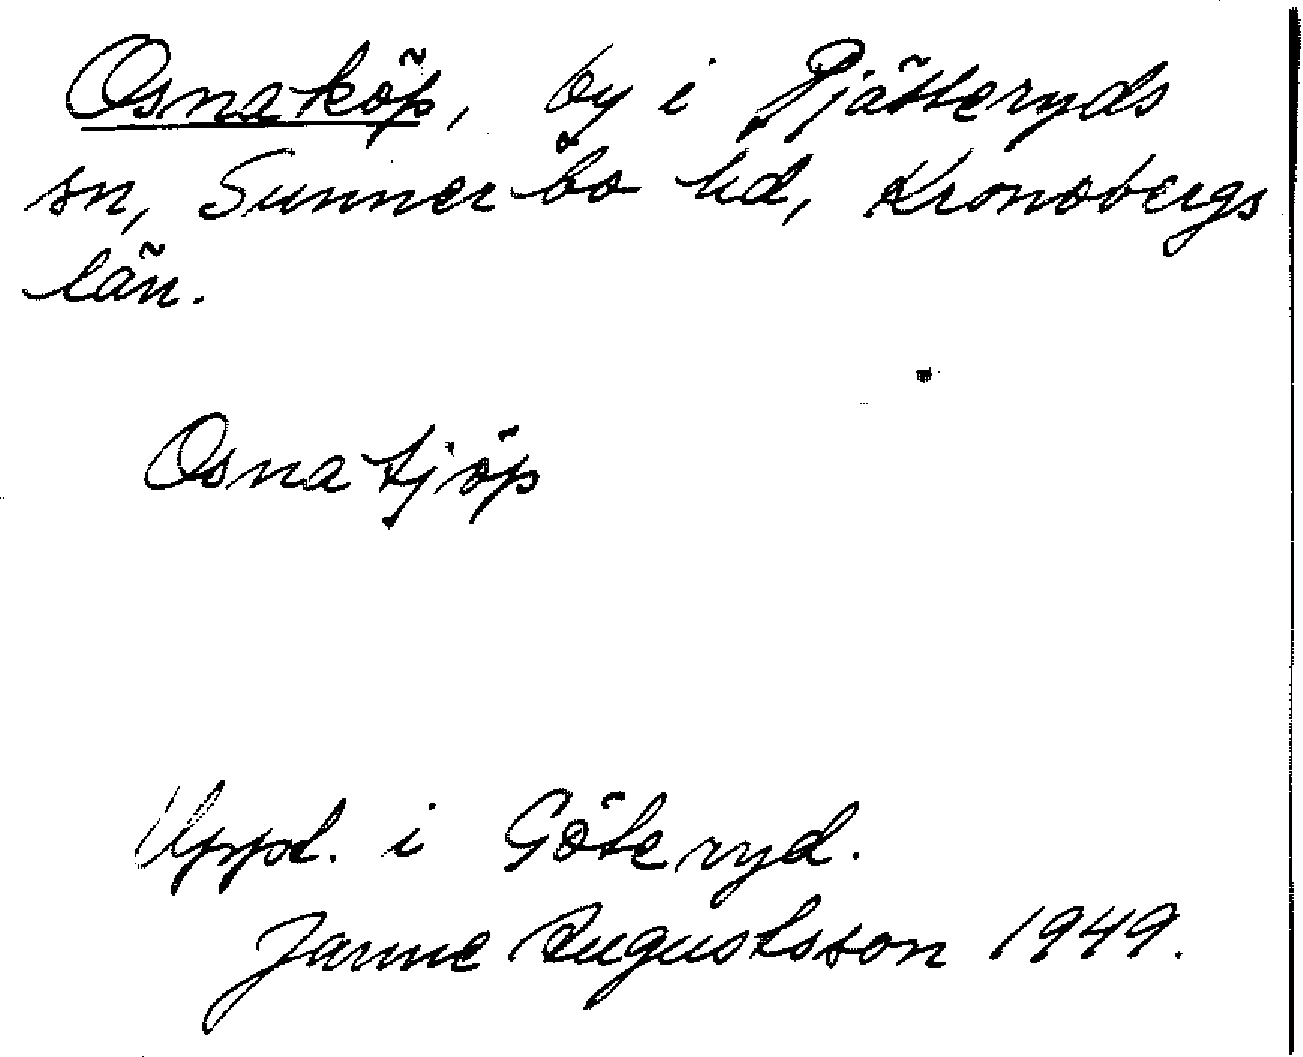 Osnaköp, by i Pjätteryds
sn, Sunnerbo hd, Kronobergs
län.
Osnatjöp
Uppt. i Göteryd.
Janne Augustsson 1949.